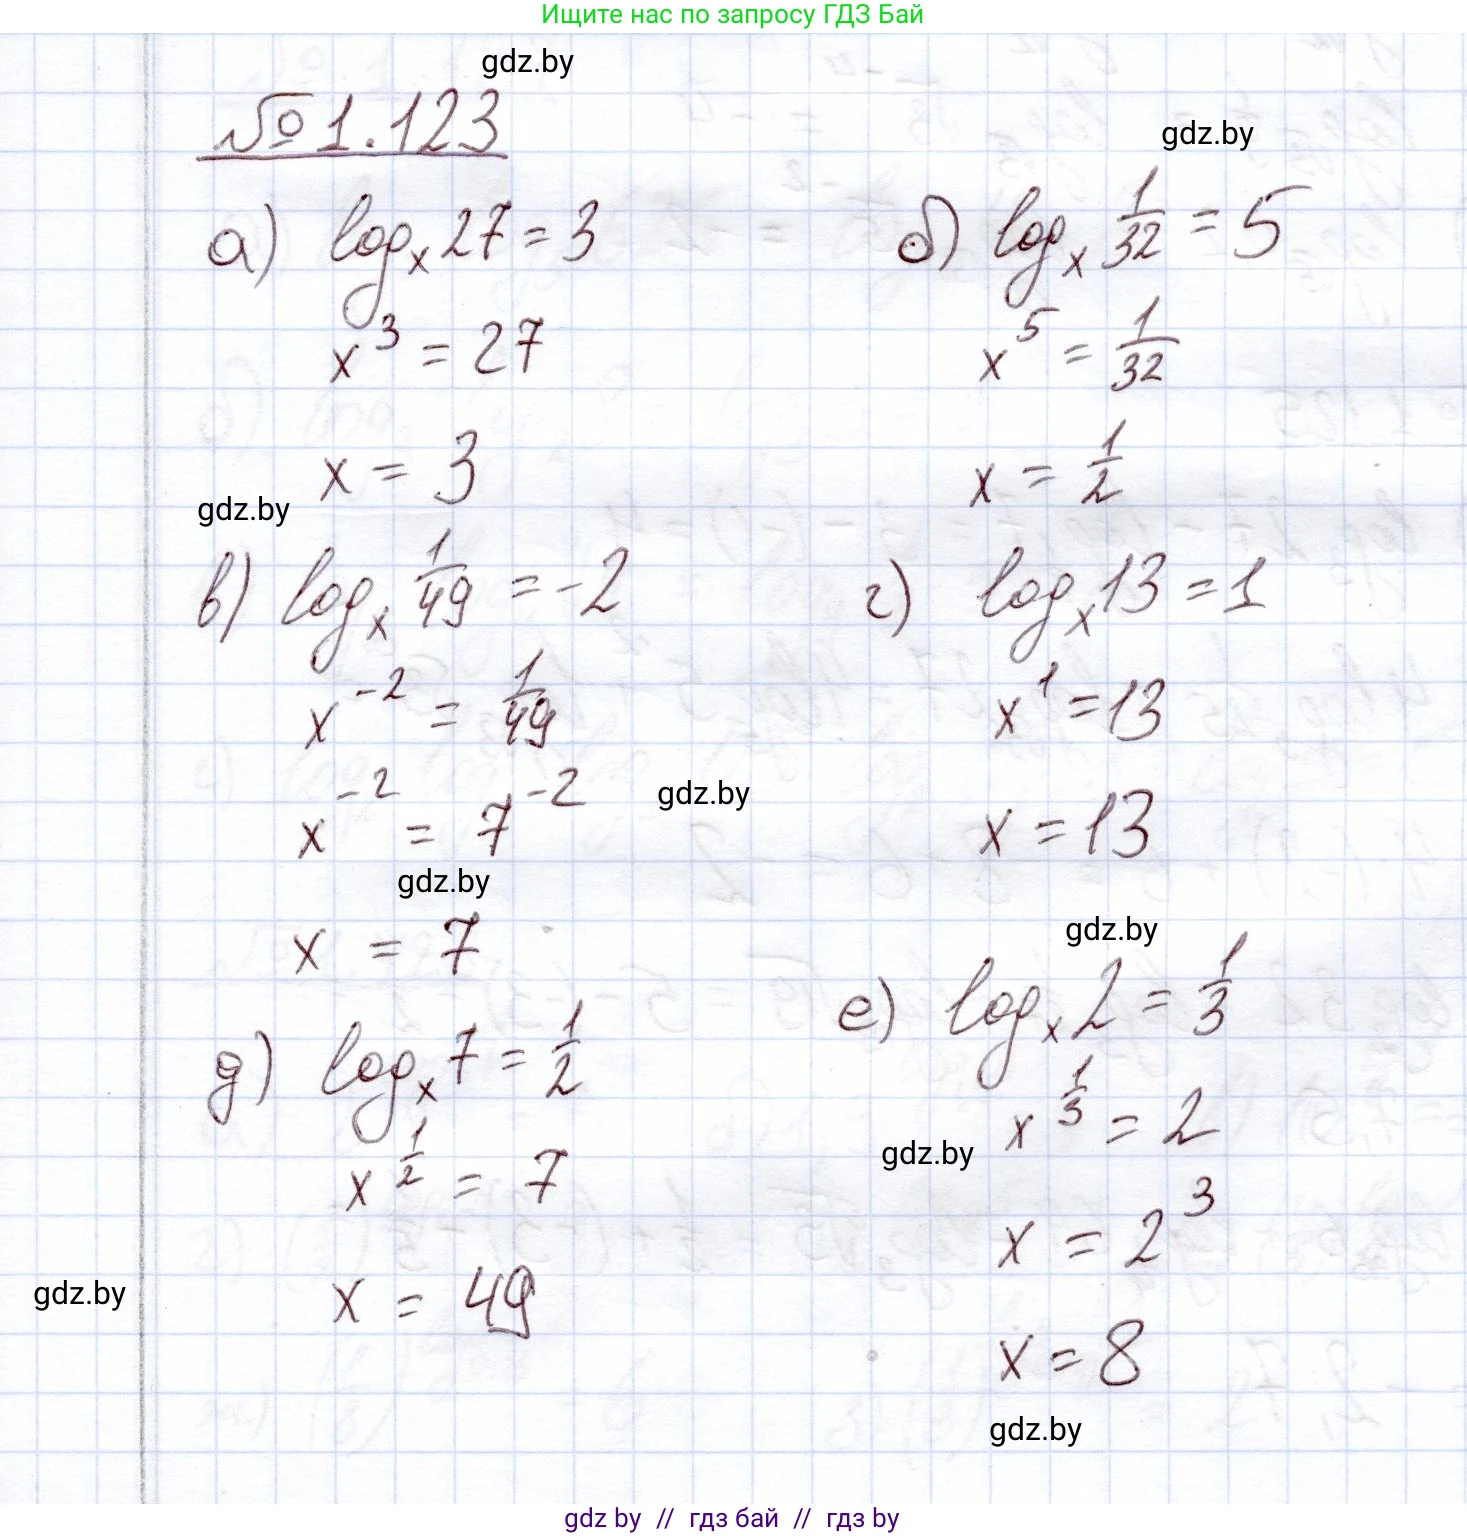 Ищите нас по запросу ГДЗ Бай
gdz.by
№ 1.123
gdz.by
а) log_x 27 = 3
x^3 = 27
x = 3
gdz.by
б) log_x 1/32 = 5
x^5 = 1/32
x = 1/2
в) log_x 1/49 = -2
x^-2 = 1/49
x^-2 = 7^-2
gdz.by
gdz.by
x = 7
г) log_x 13 = 1
x^1 = 13
x = 13
gdz.by
д) log_x 7 = 1/2
x^1/2 = 7
x = 49
gdz.by
е) log_x 2 = 1/3
x^1/3 = 2
gdz.by
x = 2^3
x = 8
gdz.by
gdz by // гдз бай // гдз by